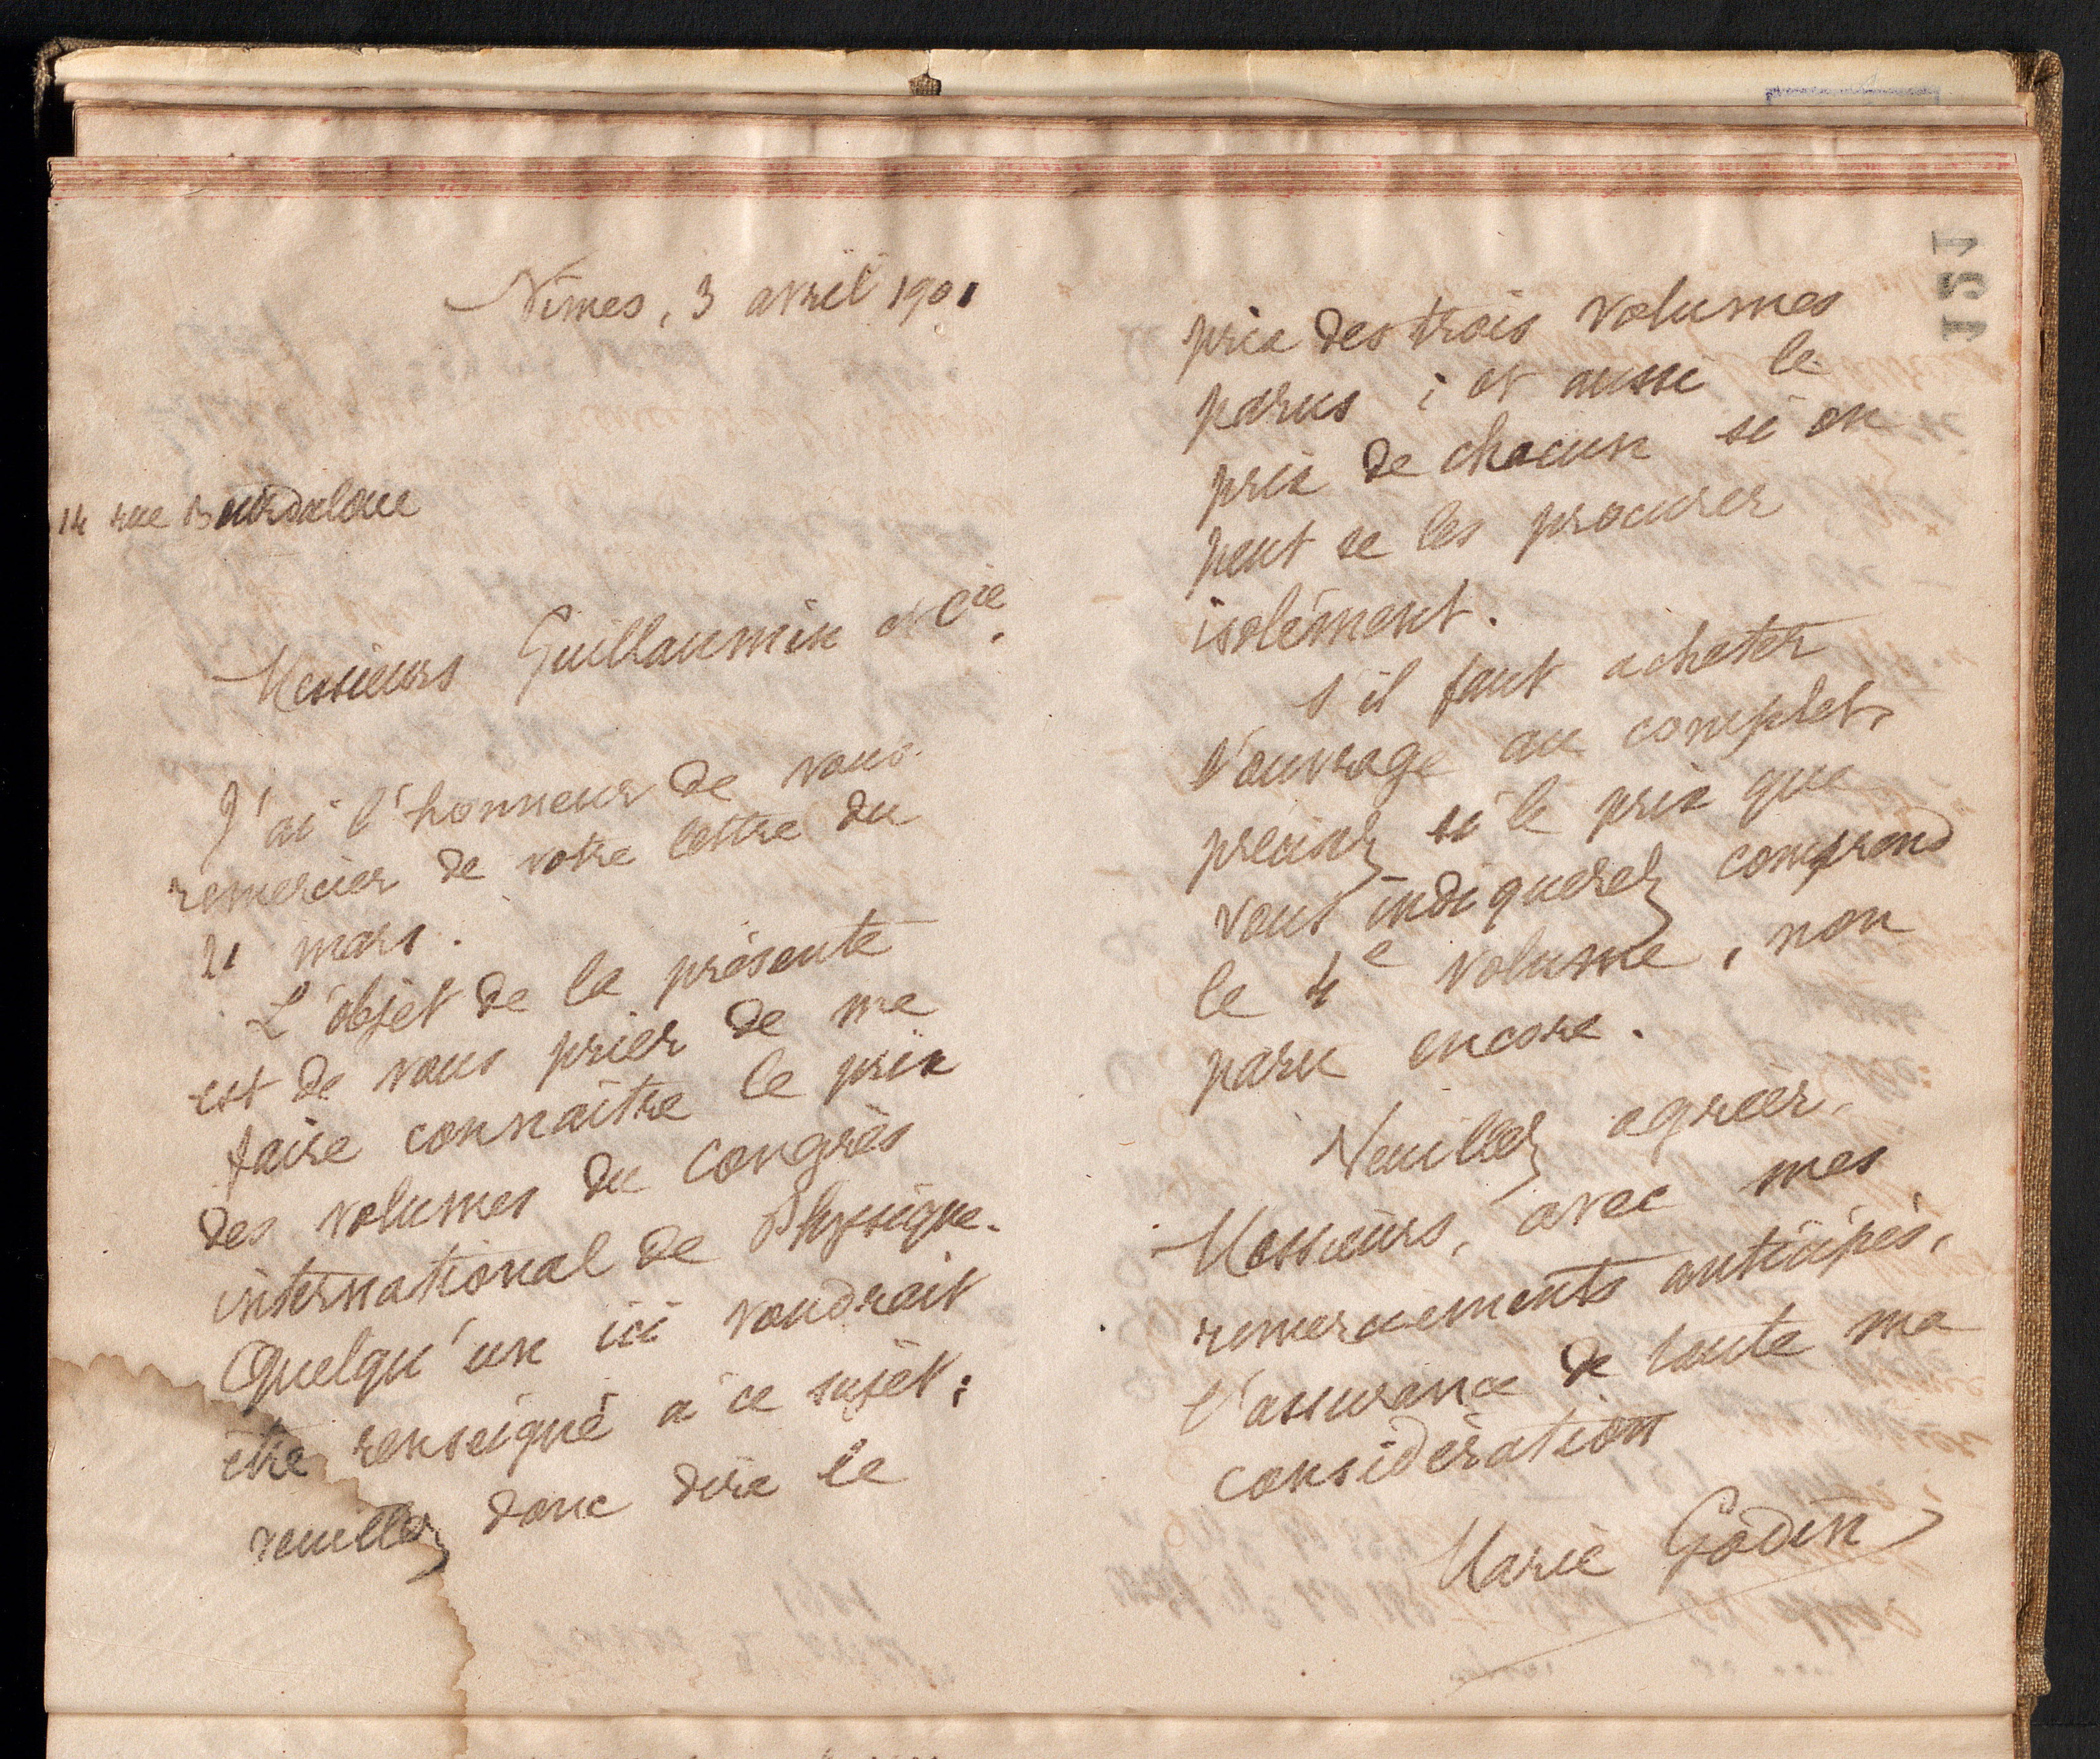 151
Nîmes, 3 avril 1901
14 rue Bourdaloue
Messieurs Guillaumin et Cie.
J'ai l'honneur de vous
remercier de votre lettre du
21 mars.
L'objet de la présente
est de vous prier de me
faire connaître le prix
des volumes du Congrès
international de Physique.
Quelqu'un ici voudrait
être renseigné à ce sujet;
veuillez donc dire le
prix des trois volumes
parus ; et aussi le
prix de chacun si on
peut se les procurer
isolément.
S'il faut acheter
l'ouvrage au complet,
précisez si le prix que
vous indiquerez comprend
le 4e volume, non
paru encore.
Veuillez agréer,
Messieurs, avec mes
remerciements anticipés,
l'assurance de toute ma
considération
Marie Godin